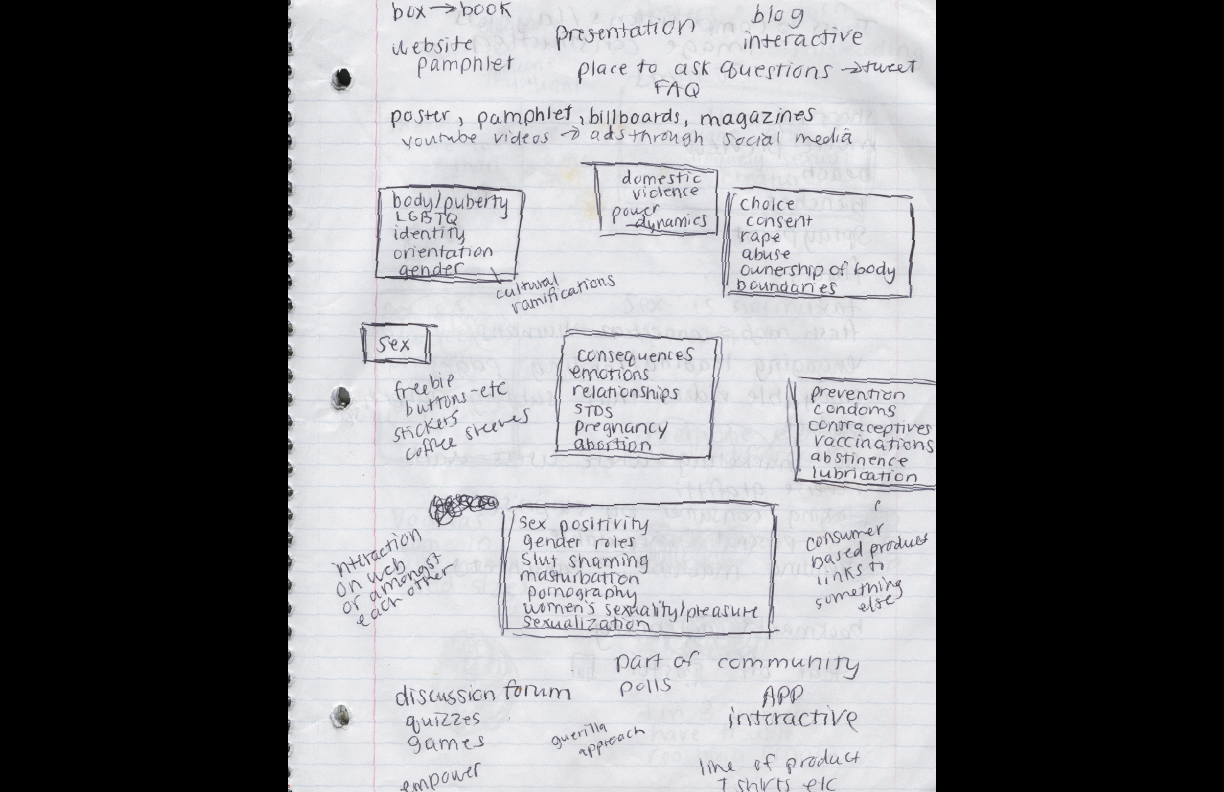 box → book
presentation
blog
interactive
website
pamphlet
place to ask questions → tweet
FAQ
poster, pamphlet, billboards, magazines
youtube videos → ads through social media
body/puberty
LGBTQ
identity
orientation
gender
cultural
ramifications
domestic
violence
power
dynamics
choice
consent
rape
abuse
ownership of body
boundaries
sex
freebie
buttons-etc
stickers
coffee sleeves
consequences
emotions
relationships
STDS
pregnancy
abortion
prevention
condoms
contraceptives
vaccinations
abstinence
lubrication
consumer
based product
links to
something
else
interaction
on web
or amongst
each other
sex positivity
gender roles
slut shaming
masturbation
pornography
women's sexuality/pleasure
sexualization
part of community
polls
discussion forum
quizzes
games
guerilla
approach
APP
interactive
empower
line of product
t shirts etc